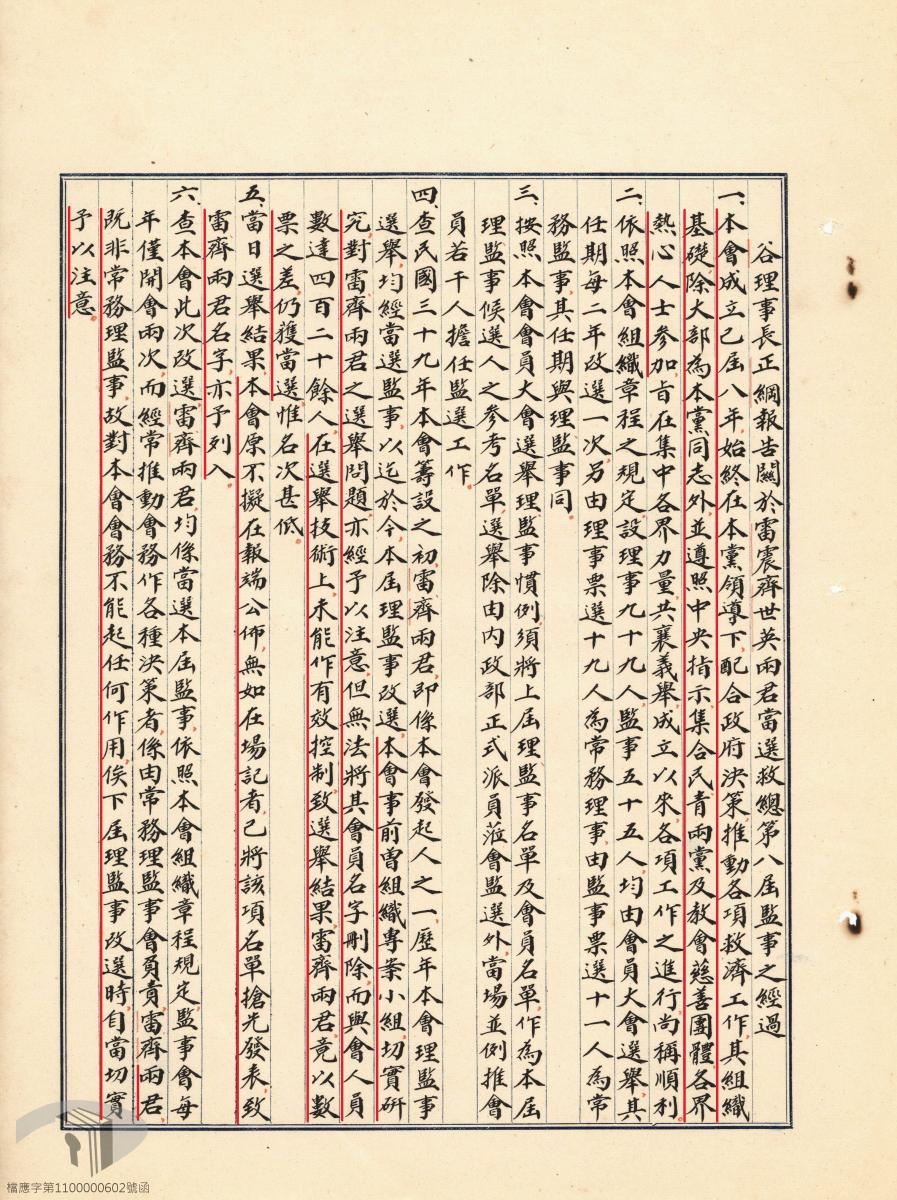 谷理事長正綱報告關於雷震齊世英兩君當選救總第八屆監事之經過
一、本會成立已屆八年，始終在本黨領導下，配合政府決策推動各項救濟工作，其組織
基礎除大部為本黨同志外，並遵照中央指示，集合民青兩黨及教會慈善團體各界
熱心人士參加，旨在集中各界力量，共襄義舉，成立以來，各項工作之進行，尚稱順利。
二、依照本會組織章程之規定，設理事九十九人，監事五十五人，均由會員大會選舉，其
任期每二年改選一次，另由理事票選十九人為常務理事，由監事票選十一人為常
務監事，其任期與理監事同。
三、按照本會會員大會選舉理監事慣例，須將上屆理監事名單及會員名單，作為本屆
理監事候選人之參考名單，選舉除由內政部正式派員蒞會監選外，當場並例推會
員若干人擔任監選工作。
四、查民國三十九年本會籌設之初，雷齊兩君，即係本會發起人之一，歷年本會理監事
選舉，均經當選監事，以迄於今，本屆理監事改選，本會事前曾組織專案小組，切實研
究，對雷齊兩君之選舉問題，亦經予以注意，但無法將其會員名字刪除，而與會人員
數達四百二十餘人，在選舉技術上，未能作有效控制，致選舉結果，雷齊兩君，竟以數
票之差，仍獲當選，惟名次甚低。
五、當日選舉結果，本會原不擬在報端公佈，無如在場記者，已將該項名單搶先發表，致
雷齊兩君名字，亦予列入。
六、查本會此次改選，雷齊兩君，均係當選本屆監事，依照本會組織章程規定，監事會每
年僅開會兩次，而經常推動會務作各種決策者，係由常務理監事會負責，雷齊兩君，
既非常務理監事，故對本會會務不能起任何作用，俟下屆理監事改選時，自當切實
予以注意。
檔應字第1100000602號函